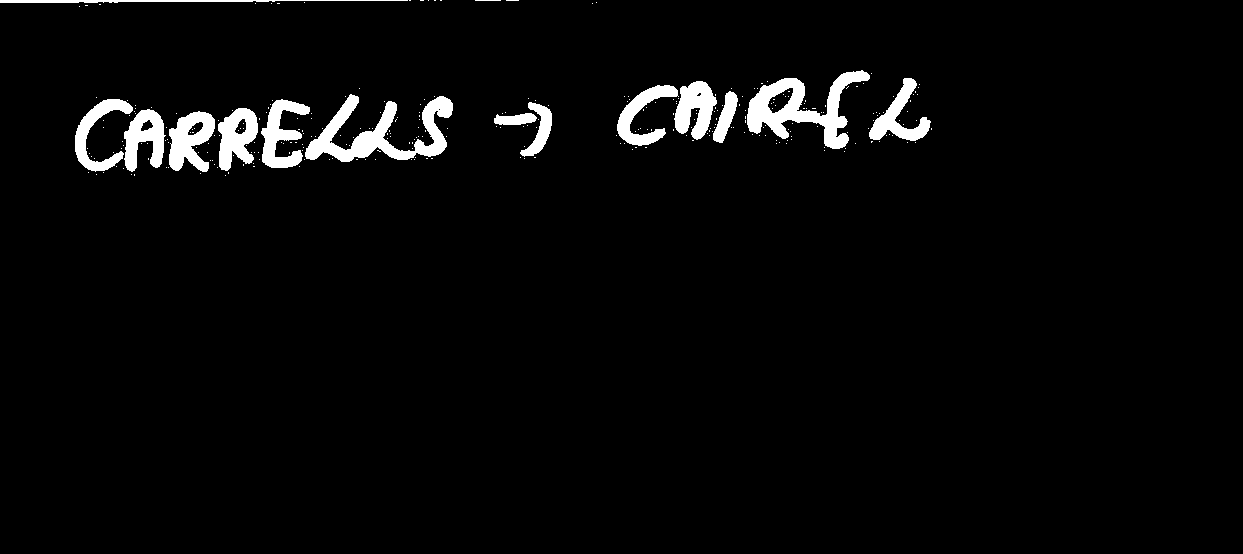 CARRELLS → CAIREL